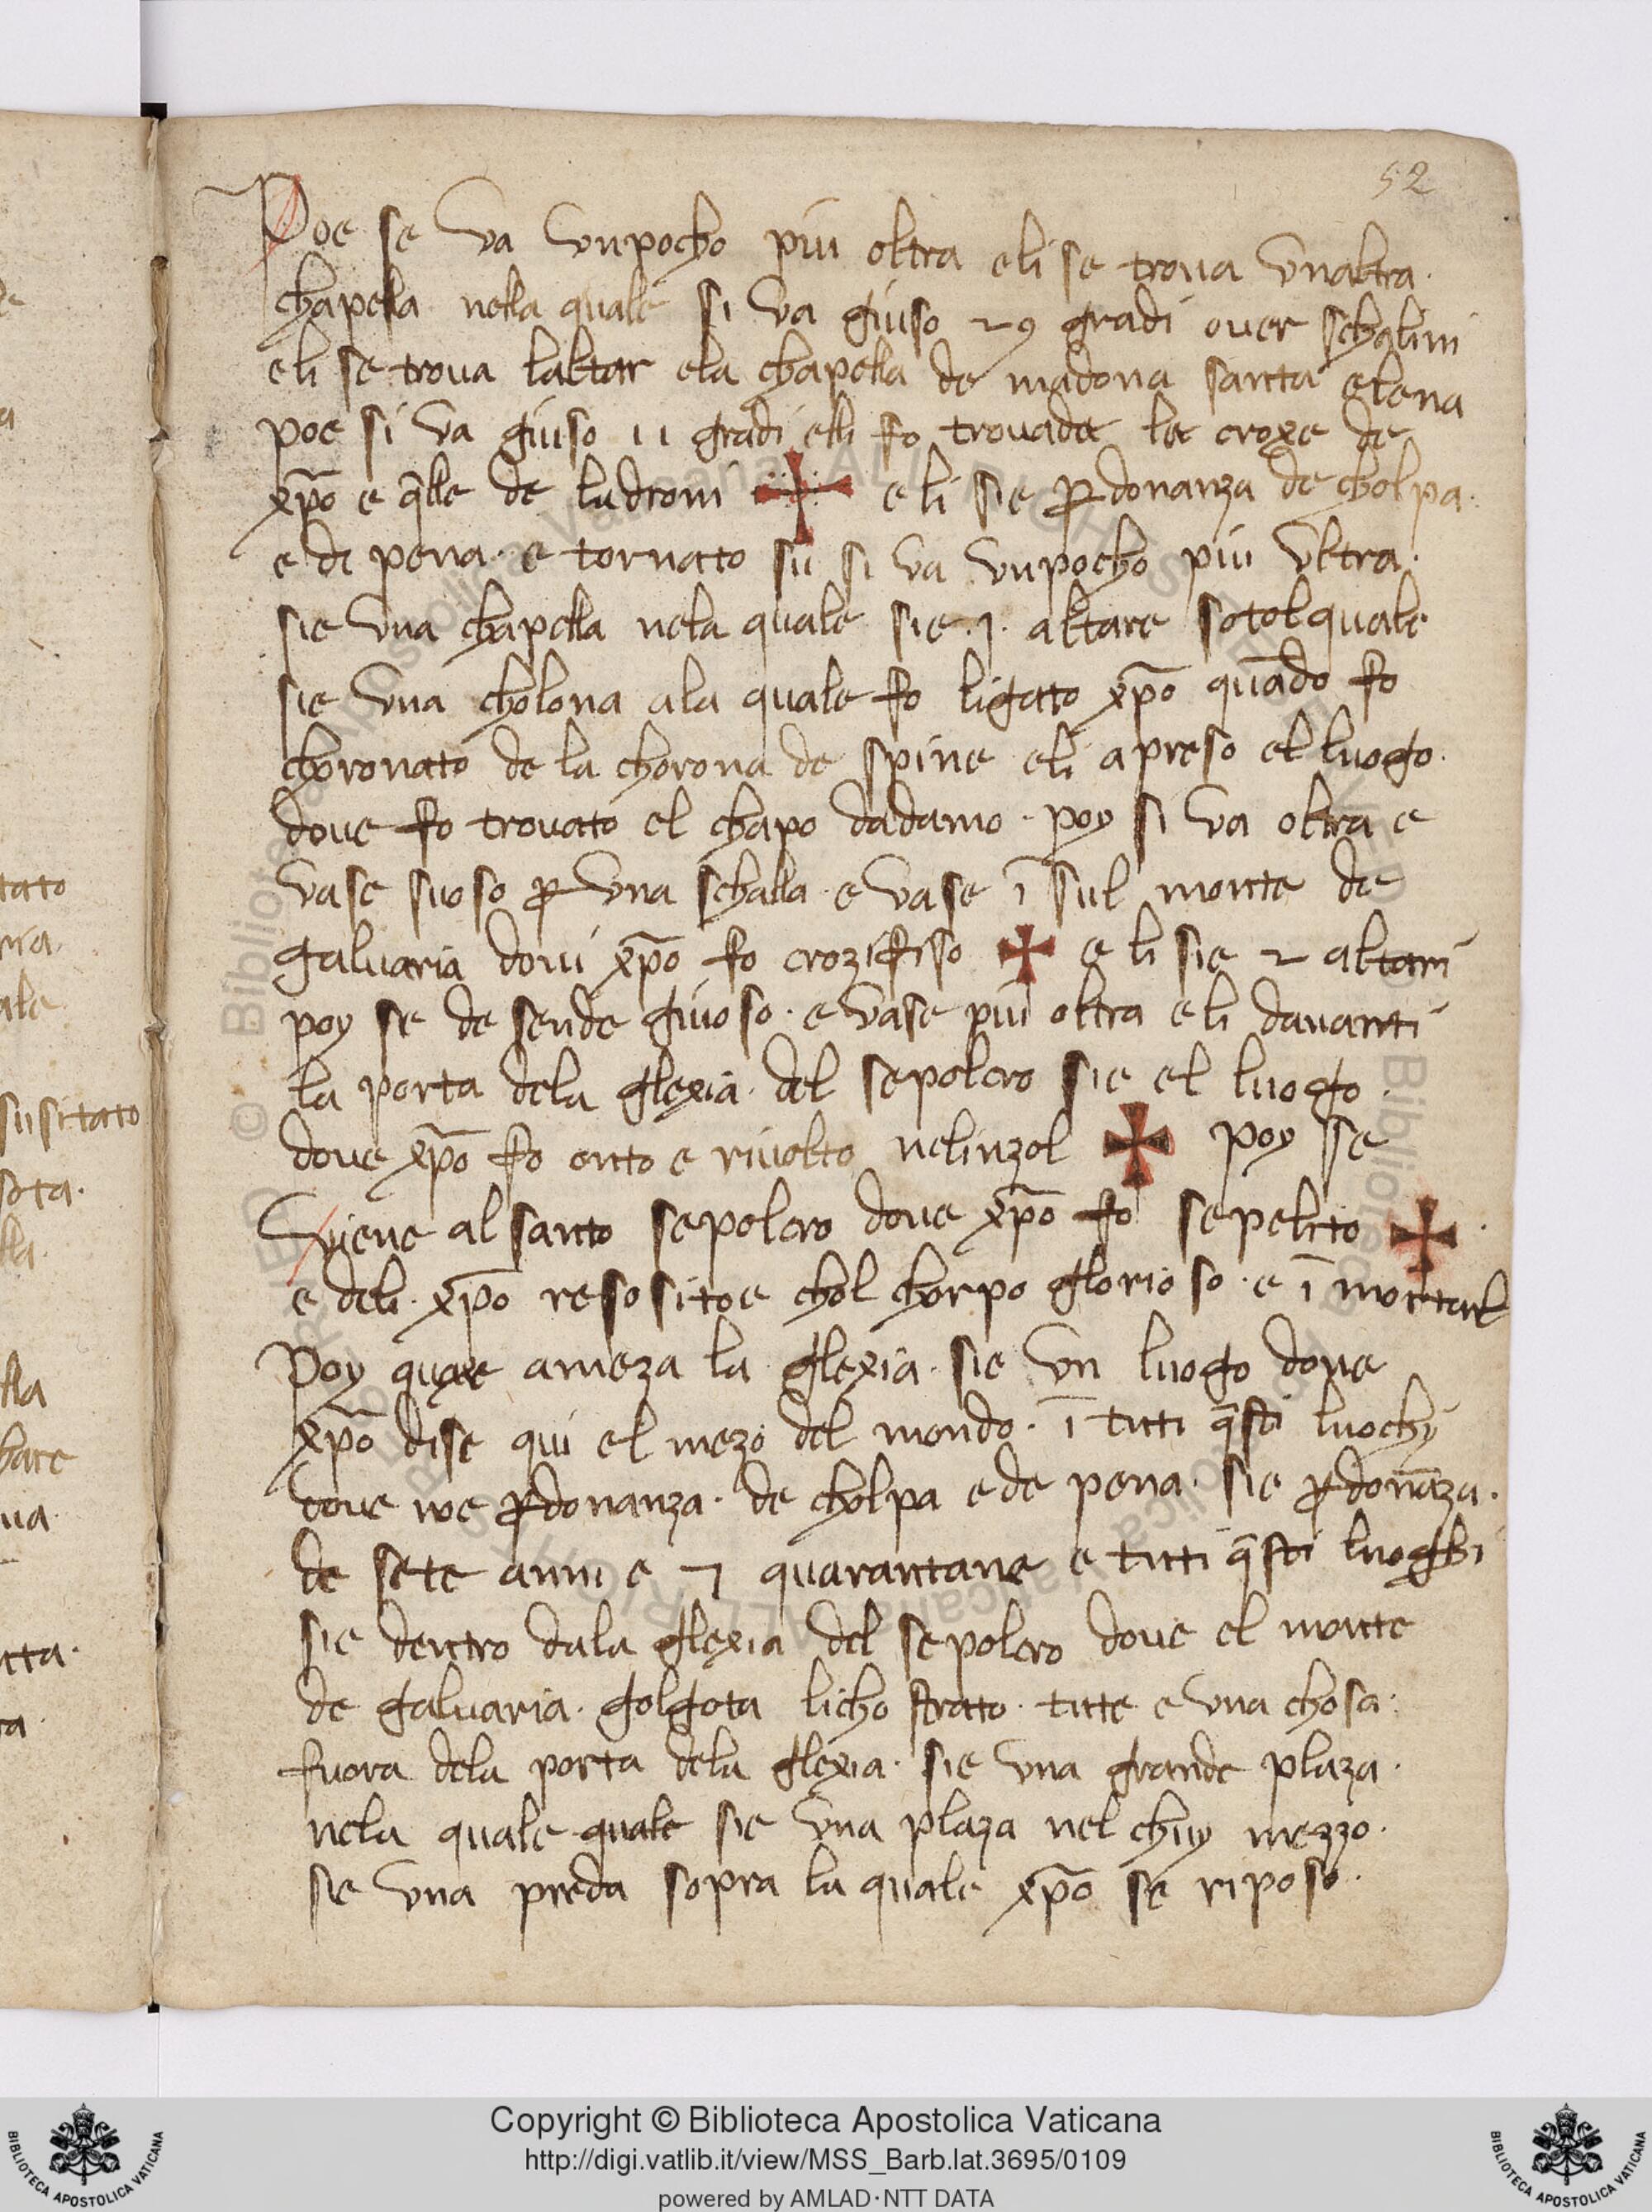 52
Poe se va vnpocho piu oltra eli se troua vnaltra.
chapella nella quale si va giuso 29 gradi ouer schalini
eli se troua laltar ela chapella de madona santa elena
poe si va giuso 11 gradi elli fo trouade le croxe de
xp̄o e q̄lle de ladroni ✠ e li sie ꝑdonanza de cholpa.
e di pena. e tornato su si va vnpocho piu vltra.
sie vna chapella nela quale sie .j. altare sotolquale
sie vna cholona ala quale fo ligato xp̄o quādo fo
choronato de la chorona de spine eli apreso el luogo.
doue fo trouato el chapo dadamo. poy si va oltra e
vase suoso ꝑ vna schalla e vase ī sul monte de
galuaria doui xp̄o fo crozifisso ✠ e li sie 2 altari
poy se de sende giuoso. e vase piu oltra eli dauanti
la porta dela glexia. del sepolcro sie el luogo.
doue xp̄o fo onto e riuolto nelinzol ✠ poy se
viene al santo sepolcro doue xp̄o fo sepelito ✠
e deli. xp̄o resositoe chol chorpo glorioso. e ī mortal
Poy quaxe ameza la glexia. sie vn luogo doue
xp̄o dise qui el mezo del mondo. ī tutti q̄sti luochy
doue noe ꝑdonanza. de cholpa e de pena. sie ꝑdonāza.
de sete anni e 7 quarantane e tutti q̄sti luoghi
sie dentro dala glexia del sepolcro doue el monte
de galuaria. golgota licho strato. tutte e vna chosa.
fuora dela porta dela glexia. sie vna grande plaza.
nela quale quale sie vna plaza nel chuy mezzo.
sie vna preda sopra la quale xp̄o se riposo.
Copyright © Biblioteca Apostolica Vaticana
http://digi.vatlib.it/view/MSS_Barb.lat.3695/0109
powered by AMLAD·NTT DATA
BIBLIOTECA APOSTOLICA VATICANA
BIBLIOTECA APOSTOLICA VATICANA